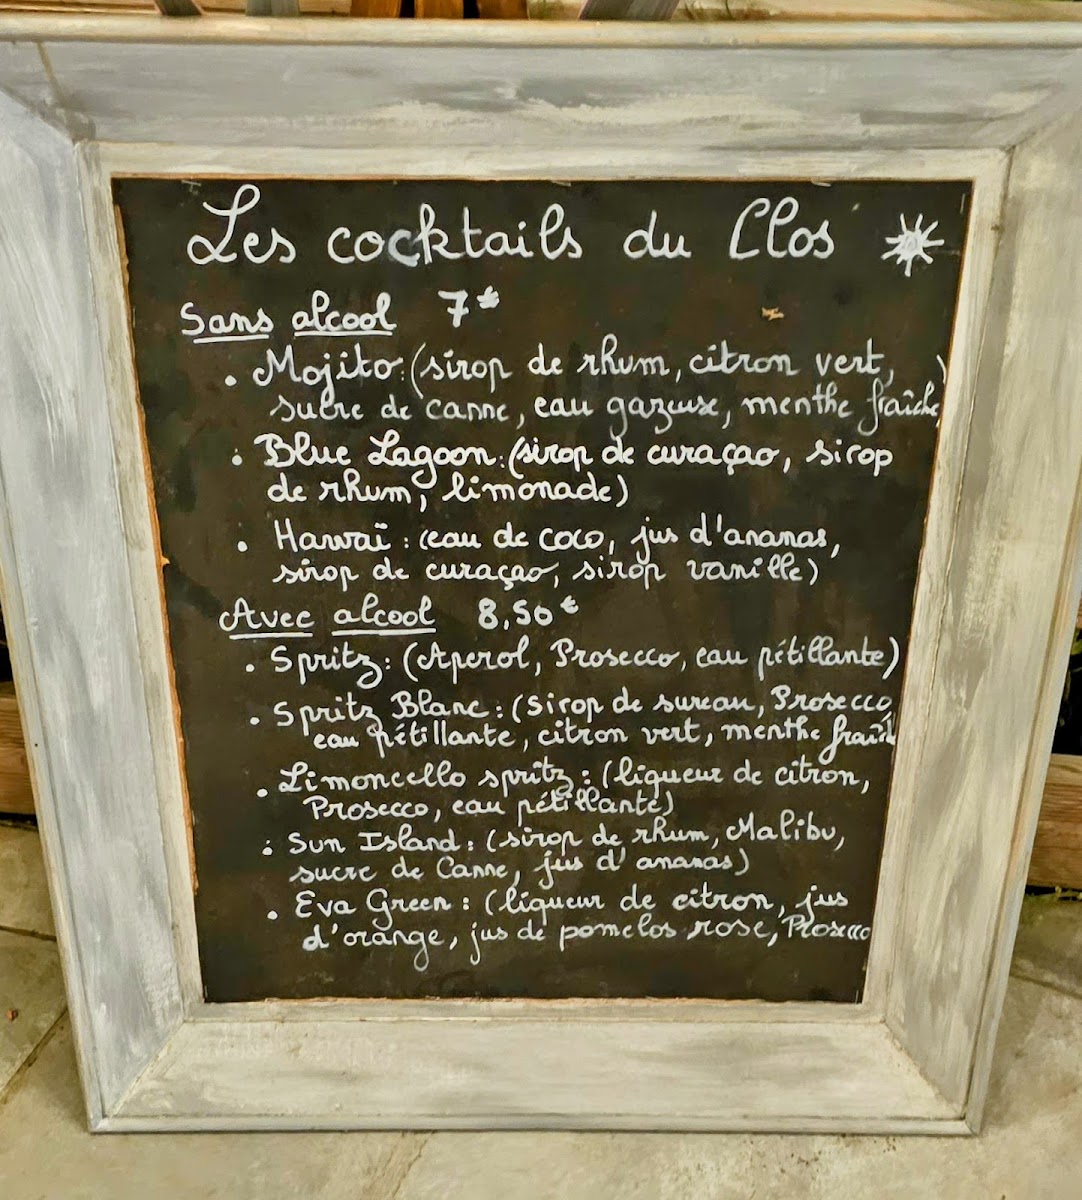 Les cocktails du Clos
Sans alcool 7€
. Mojito: (sirop de rhum, citron vert,
sucre de canne, eau gazeuse, menthe fraîche)
. Blue Lagoon: (sirop de curaçao, sirop
de rhum, limonade)
. Hawaï : (eau de coco, jus d'ananas,
sirop de curaçao, sirop vanille)
Avec alcool 8,50€
. Spritz: (Aperol, Prosecco, eau pétillante)
. Spritz Blanc : (Sirop de sureau, Prosecco,
eau pétillante, citron vert, menthe fraîche
. Limoncello spritz : (liqueur de citron,
Prosecco, eau pétillante)
. Sun Island : (sirop de rhum, Malibu,
sucre de Canne, jus d'ananas)
. Eva Green : (liqueur de citron, jus
d'orange, jus de pomelos rose, Prosecco